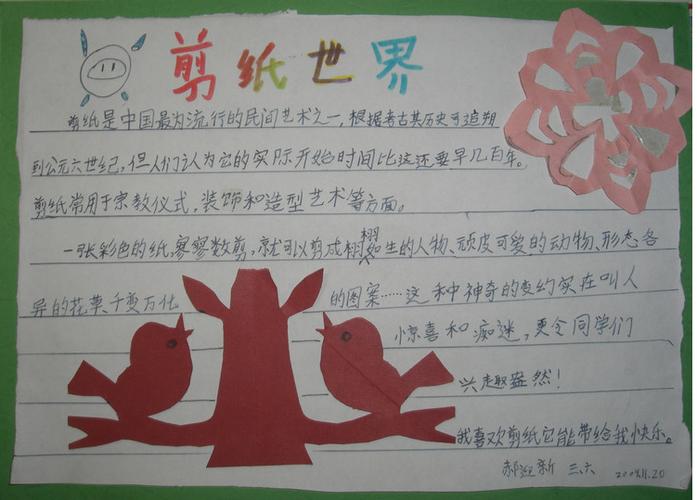 剪纸世界
剪纸是中国最为流行的民间艺术之一，根据考古其历史可追朔
到公元六世纪，但人们认为它的实际开始时间比这还要早几百年。
剪纸常用于宗教仪式，装饰和造型艺术等方面。
一张彩色的纸，寥寥数剪，就可以剪成栩栩如生的人物、顽皮可爱的动物、形态各
异的花草、千变万化的图案……这种神奇的变幻实在叫人
惊喜和痴迷，更令同学们
兴趣盎然！
我喜欢剪纸它能带给我快乐。
郝 新 三.六 11.20